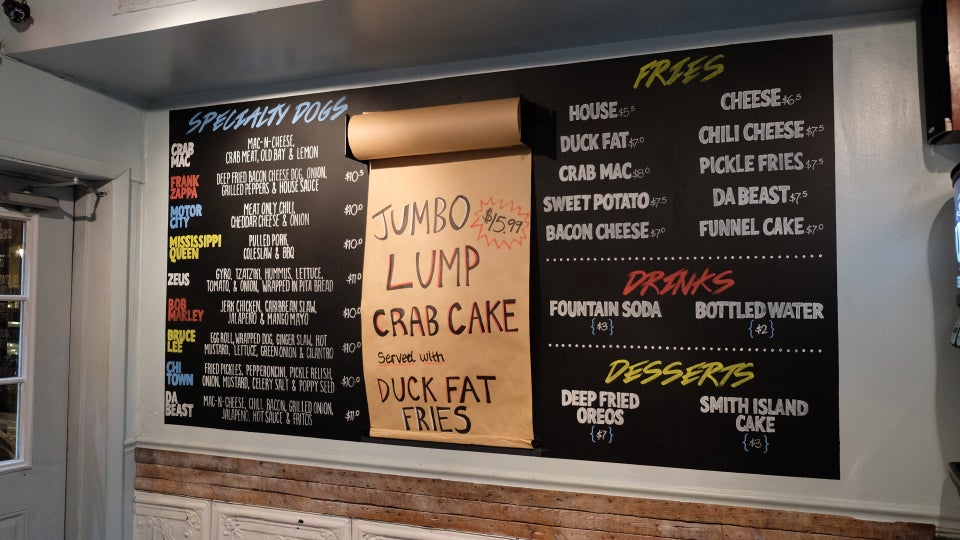 SPECIALTY DOGS
CRAB
MAC
MAC-N-CHEESE,
CRAB MEAT, OLD BAY & LEMON
FRANK
ZAPPA
DEEP FRIED BACON CHEESE DOG, ONION,
GRILLED PEPPERS & HOUSE SAUCE
$10.5
MOTOR
CITY
MEAT ONLY CHILI,
CHEDDAR CHEESE & ONION
$10.0
MISSISSIPPI
QUEEN
PULLED PORK,
COLESLAW & BBQ
$10.0
ZEUS
GYRO, TZATZIKI, HUMMUS, LETTUCE,
TOMATO, & ONION, WRAPPED IN PITA BREAD
$11.0
BOB
MARLEY
JERK CHICKEN, CARIBBEAN SLAW,
JALAPENO & MANGO MAYO
$10.0
BRUCE
LEE
EGG ROLL WRAPPED DOG, GINGER SLAW, HOT
MUSTARD, LETTUCE, GREEN ONION & CILANTRO
$10.0
CHI
TOWN
FRIED PICKLES, PEPPERONCINI, PICKLE RELISH,
ONION, MUSTARD, CELERY SALT & POPPY SEED
$10.0
DA
BEAST
MAC-N-CHEESE, CHILI, BACON, GRILLED ONION,
JALAPENO, HOT SAUCE & FRITOS
$11.0
JUMBO
$15.99
LUMP
CRAB CAKE
Served with
DUCK FAT
FRIES
FRIES
HOUSE $5.5
DUCK FAT $7.0
CRAB MAC $8.0
SWEET POTATO $7.5
BACON CHEESE $7.0
CHEESE $6.5
CHILI CHEESE $7.5
PICKLE FRIES $7.5
DA BEAST $7.5
FUNNEL CAKE $7.0
DRINKS
FOUNTAIN SODA
{$3}
BOTTLED WATER
{$2}
DESSERTS
DEEP FRIED
OREOS
{$7}
SMITH ISLAND
CAKE
{$3}